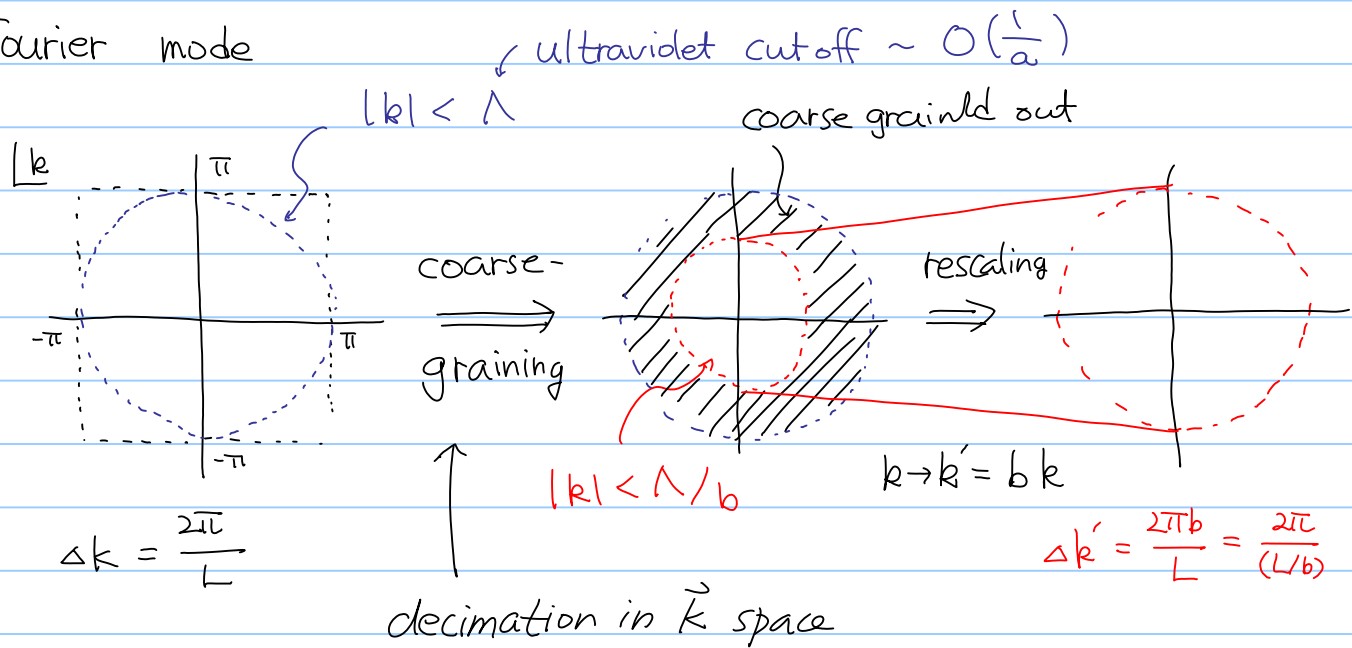 ourier mode
ultraviolet cutoff ~ O(1/a)
|k| < Λ
coarse grainld out
k
π
-π
π
-π
coarse-
graining
rescaling
|k| < Λ/b
k→k′ = b k
Δk = 2π/L
Δk′ = 2πb/L = 2π/(L/b)
decimation in k⃗ space